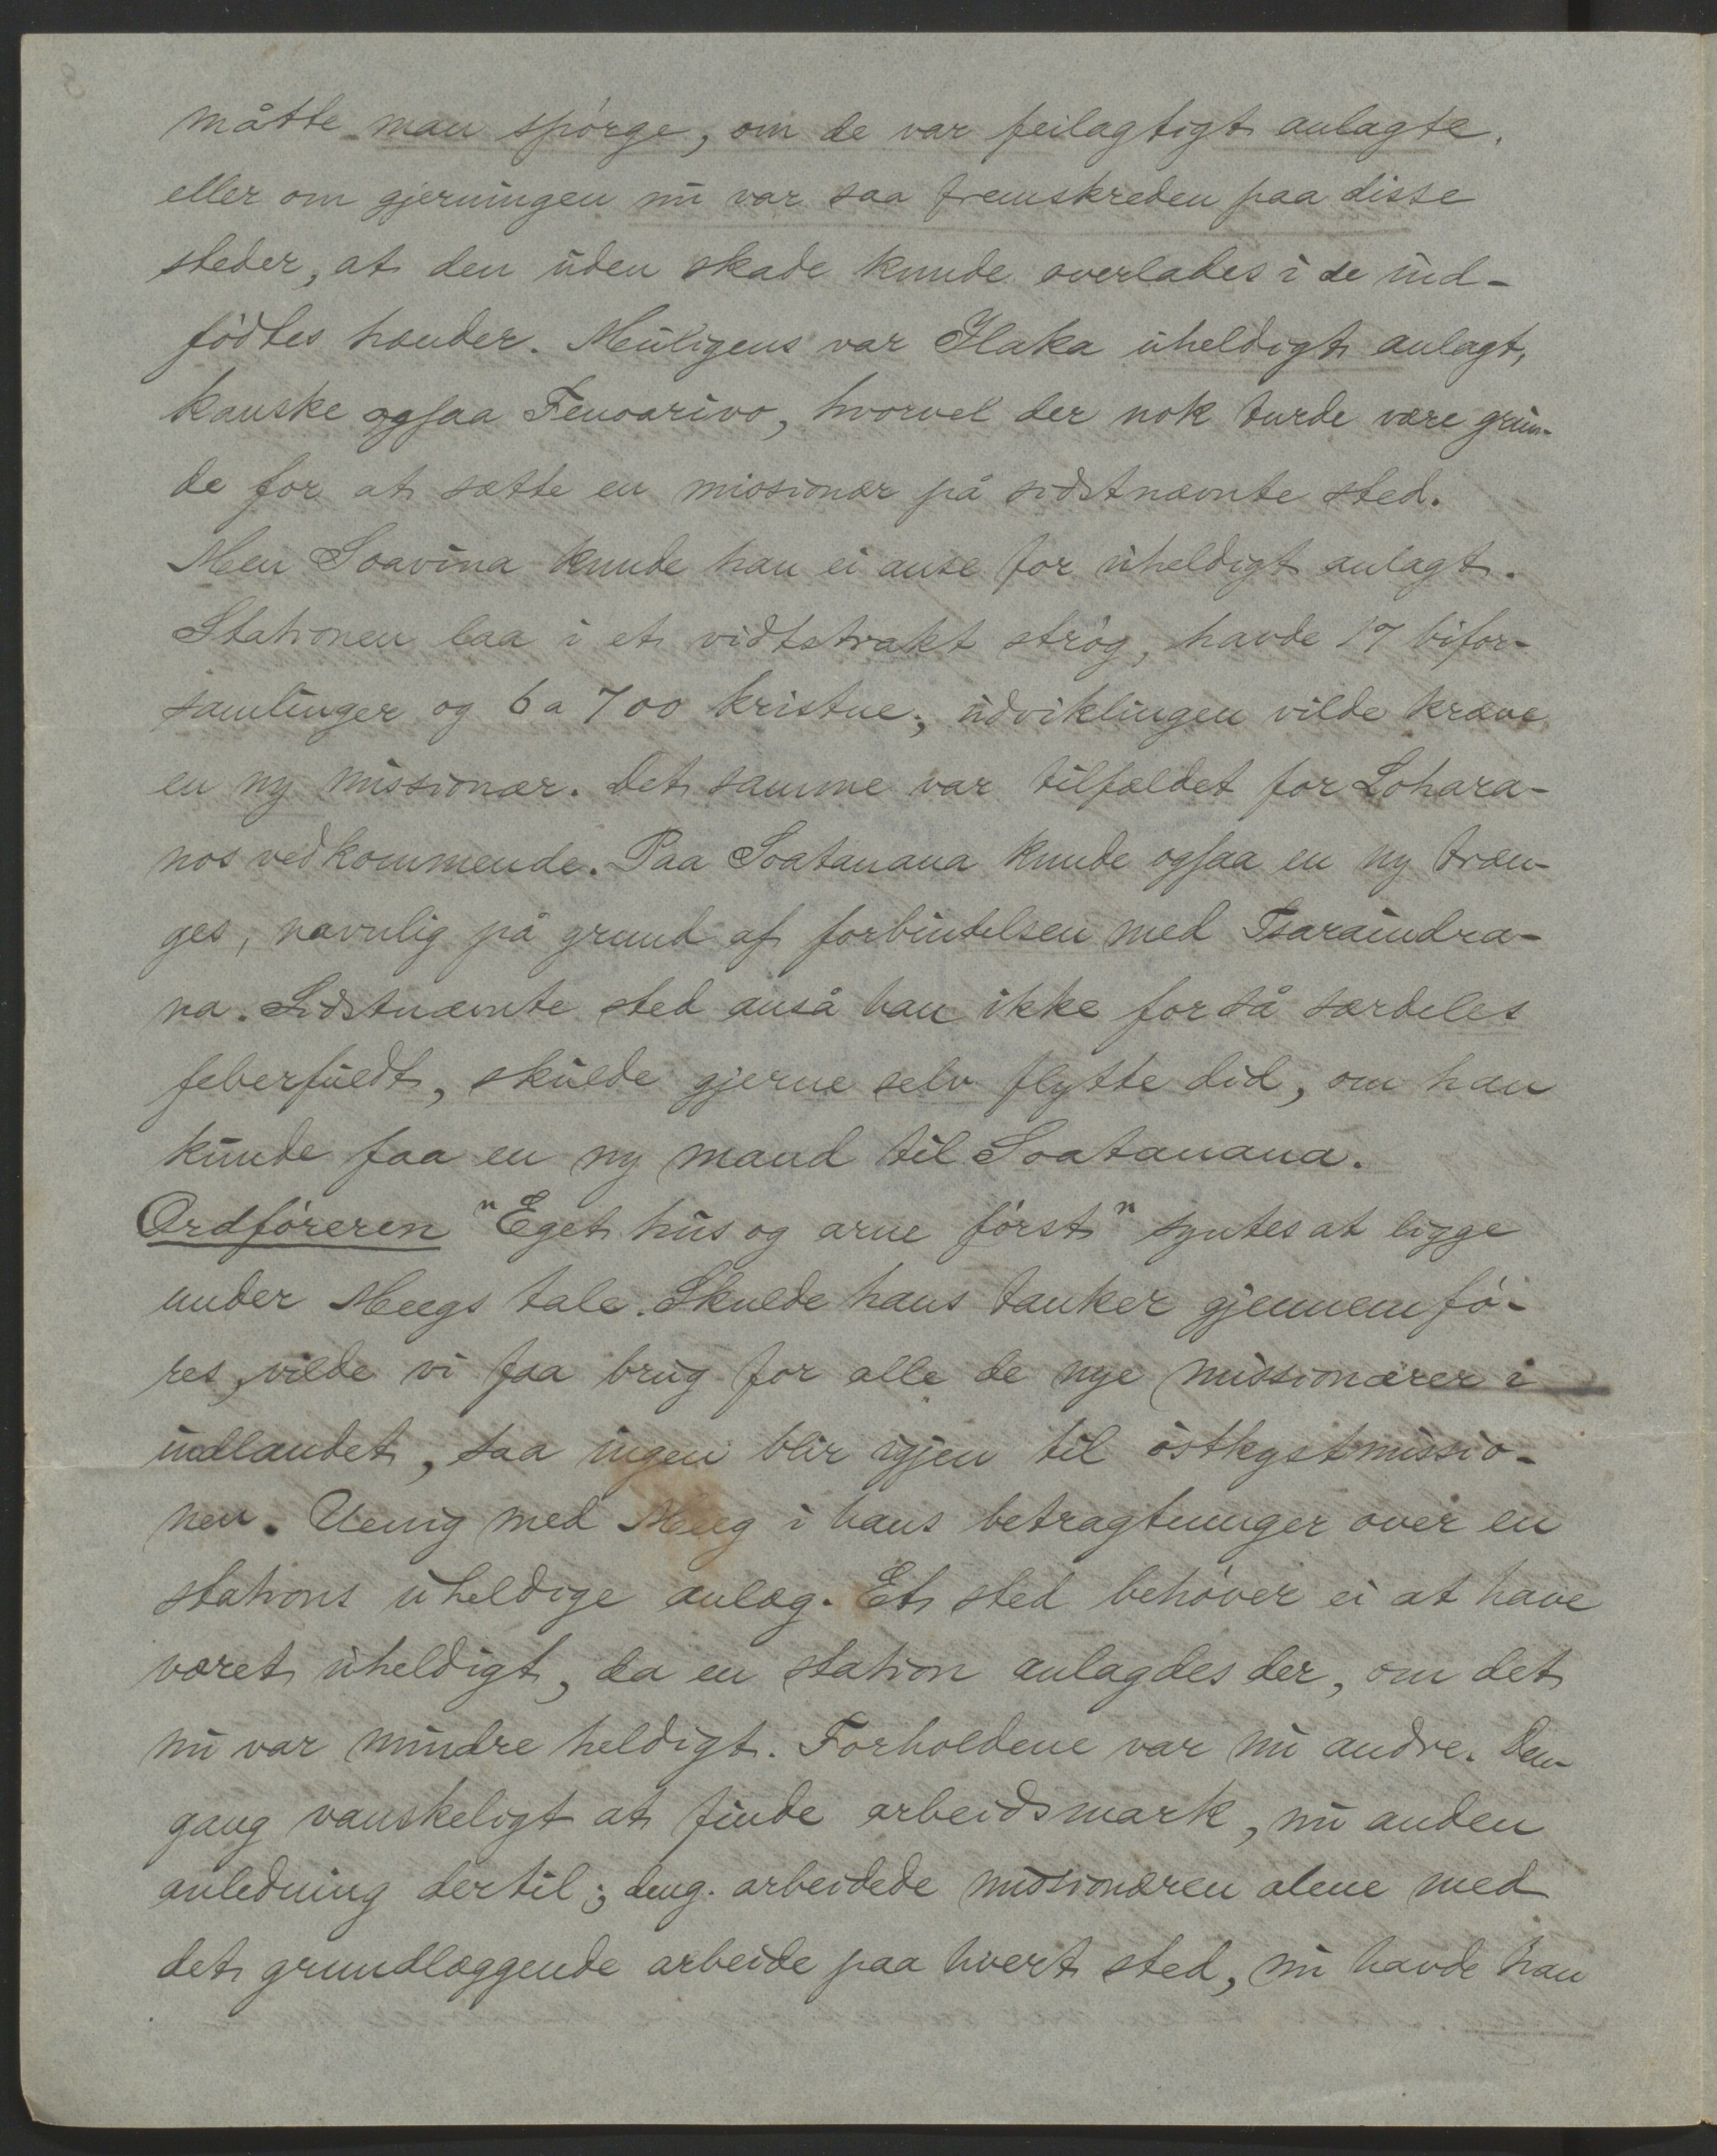 måtte man spørge, om de var feilagtigt anlagte,
eller om gjerningen nu var saa fremskreden paa disse
steder, at den uden skade kunde overlades i de ind-
fødtes hænder. Muligens var Ilaka uheldigt anlagt,
kanske ogsaa Fenoarivo, hvorvel der nok turde være grun-
de for at sætte en missionær på sidstnævnte sted.
Men Soavina kunde han ei anse for uheldigt anlagt.
Stationen laa i et vidtstrakt strøg, havde 17 bifor-
samlinger og 6 a 700 kristne; udviklingen vilde kræve
en ny missionær. Det samme var tilfældet for Lohara-
nos vedkommende. Paa Soatanana kunde ogsaa en ny træn-
ges, navnlig på grund af forbindelsen med Tsaraindra-
na. Sidstnævnte sted anså han ikke for så særdeles
feberfuldt, skulde gjerne selv flytte did, om han
kunde faa en ny mand til Soatanana.
Ordføreren "Eget hus og arne først" syntes at ligge
under Meegs tale. Skulde hans tanker gjennemfø-
res, vilde vi faa brug for alle de nye missionærer i
indlandet, saa ingen blir igjen til østkystmissio-
nen. Uenig med Meeg i hans betragtninger over en
stations uheldige anlæg. Et sted behøver ei at have
været uheldigt, da en station anlagdes der, om det
nu var mindre heldigt. Forholdene var nu andre. Den-
gang vanskeligt at finde arbeidsmark, nu anden
anledning dertil; deng. arbeidede missionæren alene med
det grundlæggende arbeide paa hvert sted, nu havde han